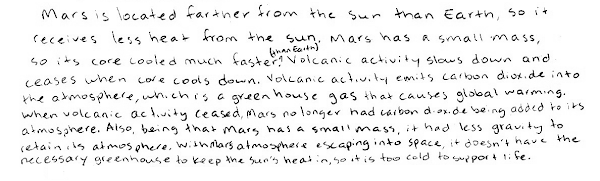 Mars is located farther from the sun than Earth, so it
receives less heat from the sun. Mars has a small mass,
so its core cooled much faster (than Earth). Volcanic activity slows down and
ceases when core cools down. Volcanic activity emits carbon dioxide into
the atmosphere, which is a greenhouse gas that causes global warming.
When volcanic activity ceased, Mars no longer had carbon dioxide being added to its
atmosphere. Also, being that Mars has a small mass, it had less gravity to
retain its atmosphere. With Mars atmosphere escaping into space, it doesn't have the
necessary greenhouse to keep the sun's heat in, so it is too cold to support life.